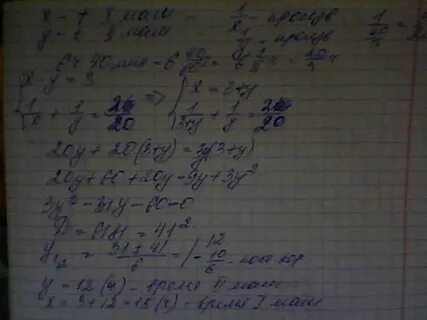 x - t I маш 1/x - произв
y - t II маш 1/y - произв
6ч 40 мин = 6 40/60 ч = 6 2/3 ч = 20/3 ч
x - y = 3
1/x + 1/y = 3/20 => x = 3+y
1/(3+y) + 1/y = 3/20
20y + 20(3+y) = 3y(3+y)
20y + 60 + 20y = 9y + 3y²
3y² - 31y - 60 = 0
= 41²
y₁₂ = (31 ± 41)/6 = 12
- 10/6 - пост кор
y = 12 (ч) - время II маш
x = 3 + 12 = 15 (ч) - время I маш